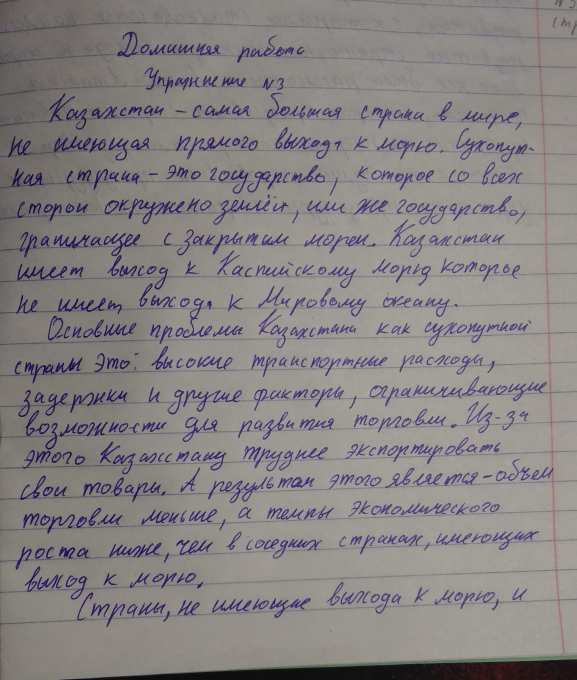 Домашняя работа
Упражнение №3
Казахстан – самая большая страна в мире,
не имеющая прямого выхода к морю. Сухопут-
ная страна – это государство, которое со всех
сторон окружено землёй, или же государство,
граничащее с закрытым морем. Казахстан
имеет выход к Каспийскому морю которое
не имеет выхода к Мировому океану.
Основные проблемы Казахстана как сухопутной
страны это: высокие транспортные расходы,
задержки и другие факторы, ограничивающие
возможности для развития торговли. Из-за
этого Казахстану труднее экспортировать
свои товары. А результатом этого является – объем
торговли меньше, а темпы экономического
роста ниже, чем в соседних странах, имеющих
выход к морю.
Страны, не имеющие выхода к морю, и